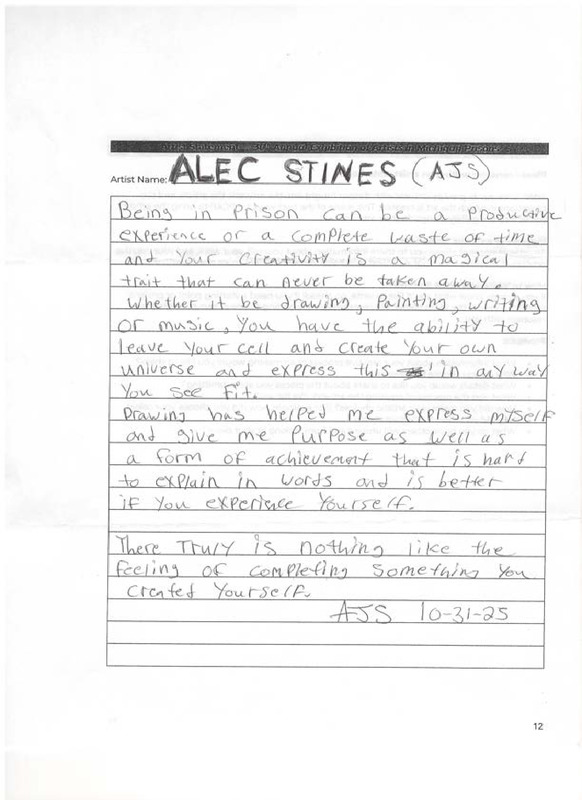 Artist Statement - 30th Annual Exhibition of Art in Michigan Prisons
Artist Name: ALEC STINES (AJS)
Being in Prison can be a Productive
experience or a complete waste of time
and your creativity is a magical
trait that can never be taken away.
Whether it be drawing, Painting, writing
or music, you have the ability to
leave your cell and create your own
universe and express this in any way
you see fit.
Drawing has helped me express myself
and give me Purpose as well as
a form of achievement that is hard
to explain in words and is better
if you experience yourself.
There Truly is nothing like the
feeling of completing something you
created yourself.
AJS 10-31-25
12